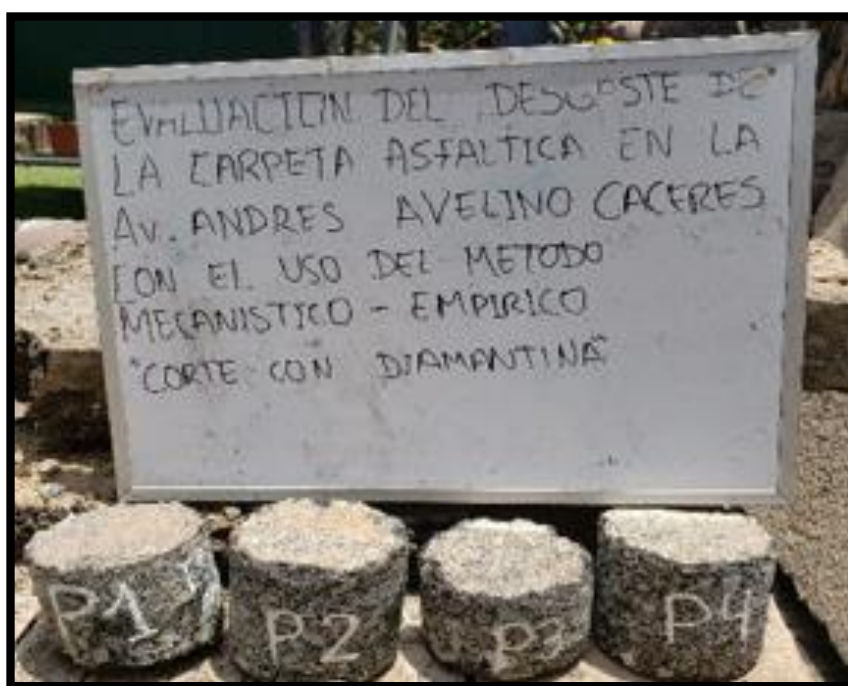 EVALUACION DEL DESGASTE DE
LA CARPETA ASFALTICA EN LA
AV. ANDRES AVELINO CACERES
CON EL USO DEL METODO
MECANISTICO - EMPIRICO
"CORTE CON DIAMANTINA"
P1 P2 P3 P4